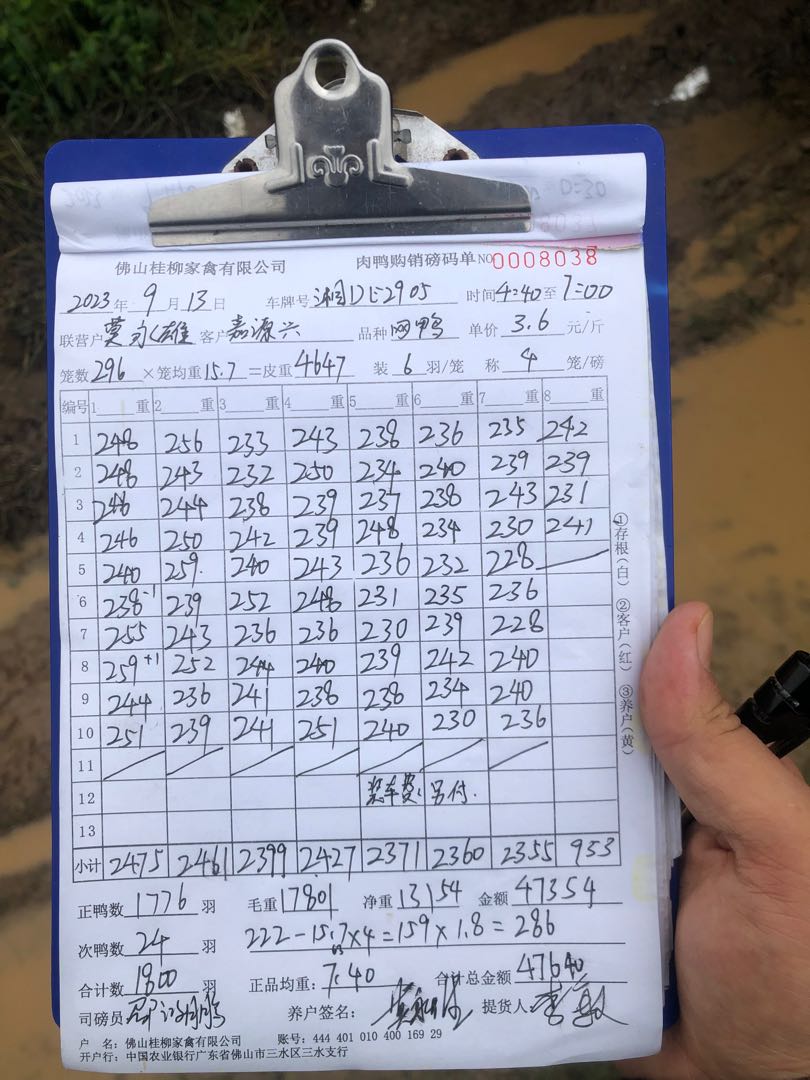 佛山桂柳家禽有限公司 肉鸭购销磅码单 NO 0008038
2023年9月13日 车牌号 湘D 2905 时间4:40至7:00
联营户 莫永雄 客户 嘉源兴 品种 鸭 单价 3.6 元/斤
笼数 296 ×笼均重 15.7 =皮重 4647 装 6 羽/笼 称 4 笼/磅
编号 1 重 2 重 3 重 4 重 5 重 6 重 7 重 8 重
1 248 256 233 243 238 236 235 242
2 248 243 232 250 234 240 239 239
3 246 244 238 239 237 238 243 231
4 246 250 242 239 248 234 230 241
5 240 259 240 243 236 232 228
6 238-1 239 252 248 231 235 236
7 255 243 236 236 230 239 228
8 259+1 252 244 240 239 242 240
9 244 236 241 238 238 234 240
10 251 239 241 251 240 230 236
11
12 装车费:另付.
13
小计 2475 2461 2399 2427 2371 2360 2355 953
正鸭数 1776 羽 毛重 17801 净重 13154 金额 47354
次鸭数 24 羽 222-15.7×4=159×1.8=286
合计数 1800 羽 正品均重: 7.40 合计总金额 47640
司磅员 养户签名: 提货人:
户 名:佛山桂柳家禽有限公司 账号:444 401 010 400 169 29
开户行:中国农业银行广东省佛山市三水区三水支行
①存根(白) ②客户(红) ③养户(黄)